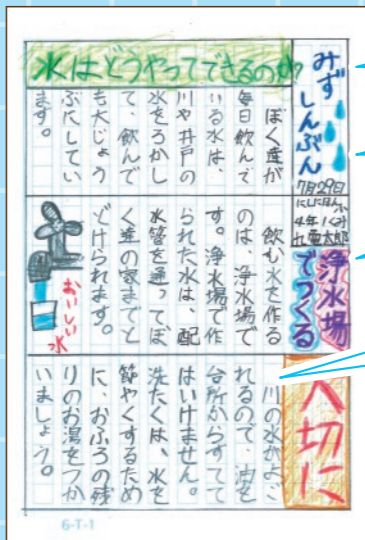 水はどうやってできるのか?
みず
しんぶん
7月29日
にしにほん小
4年1くみ
九電太郎
ぼく達が
毎日飲んで
いる水は、
川や井戸の
水をろかし
て、飲んで
も大じょう
ぶにしてい
ます。
浄水場
でつくる
飲む水を作る
のは、浄水場で
す。浄水場で作
られた水は、配
水管を通ってぼ
く達の家までと
どけられます。
おいしい
水
大切に
川の水がよご
れるので、油を
台所からすてて
はいけません。
洗たくは、水を
節やくするため
に、おふろの残
りのお湯をつか
いましょう。
6-T-1